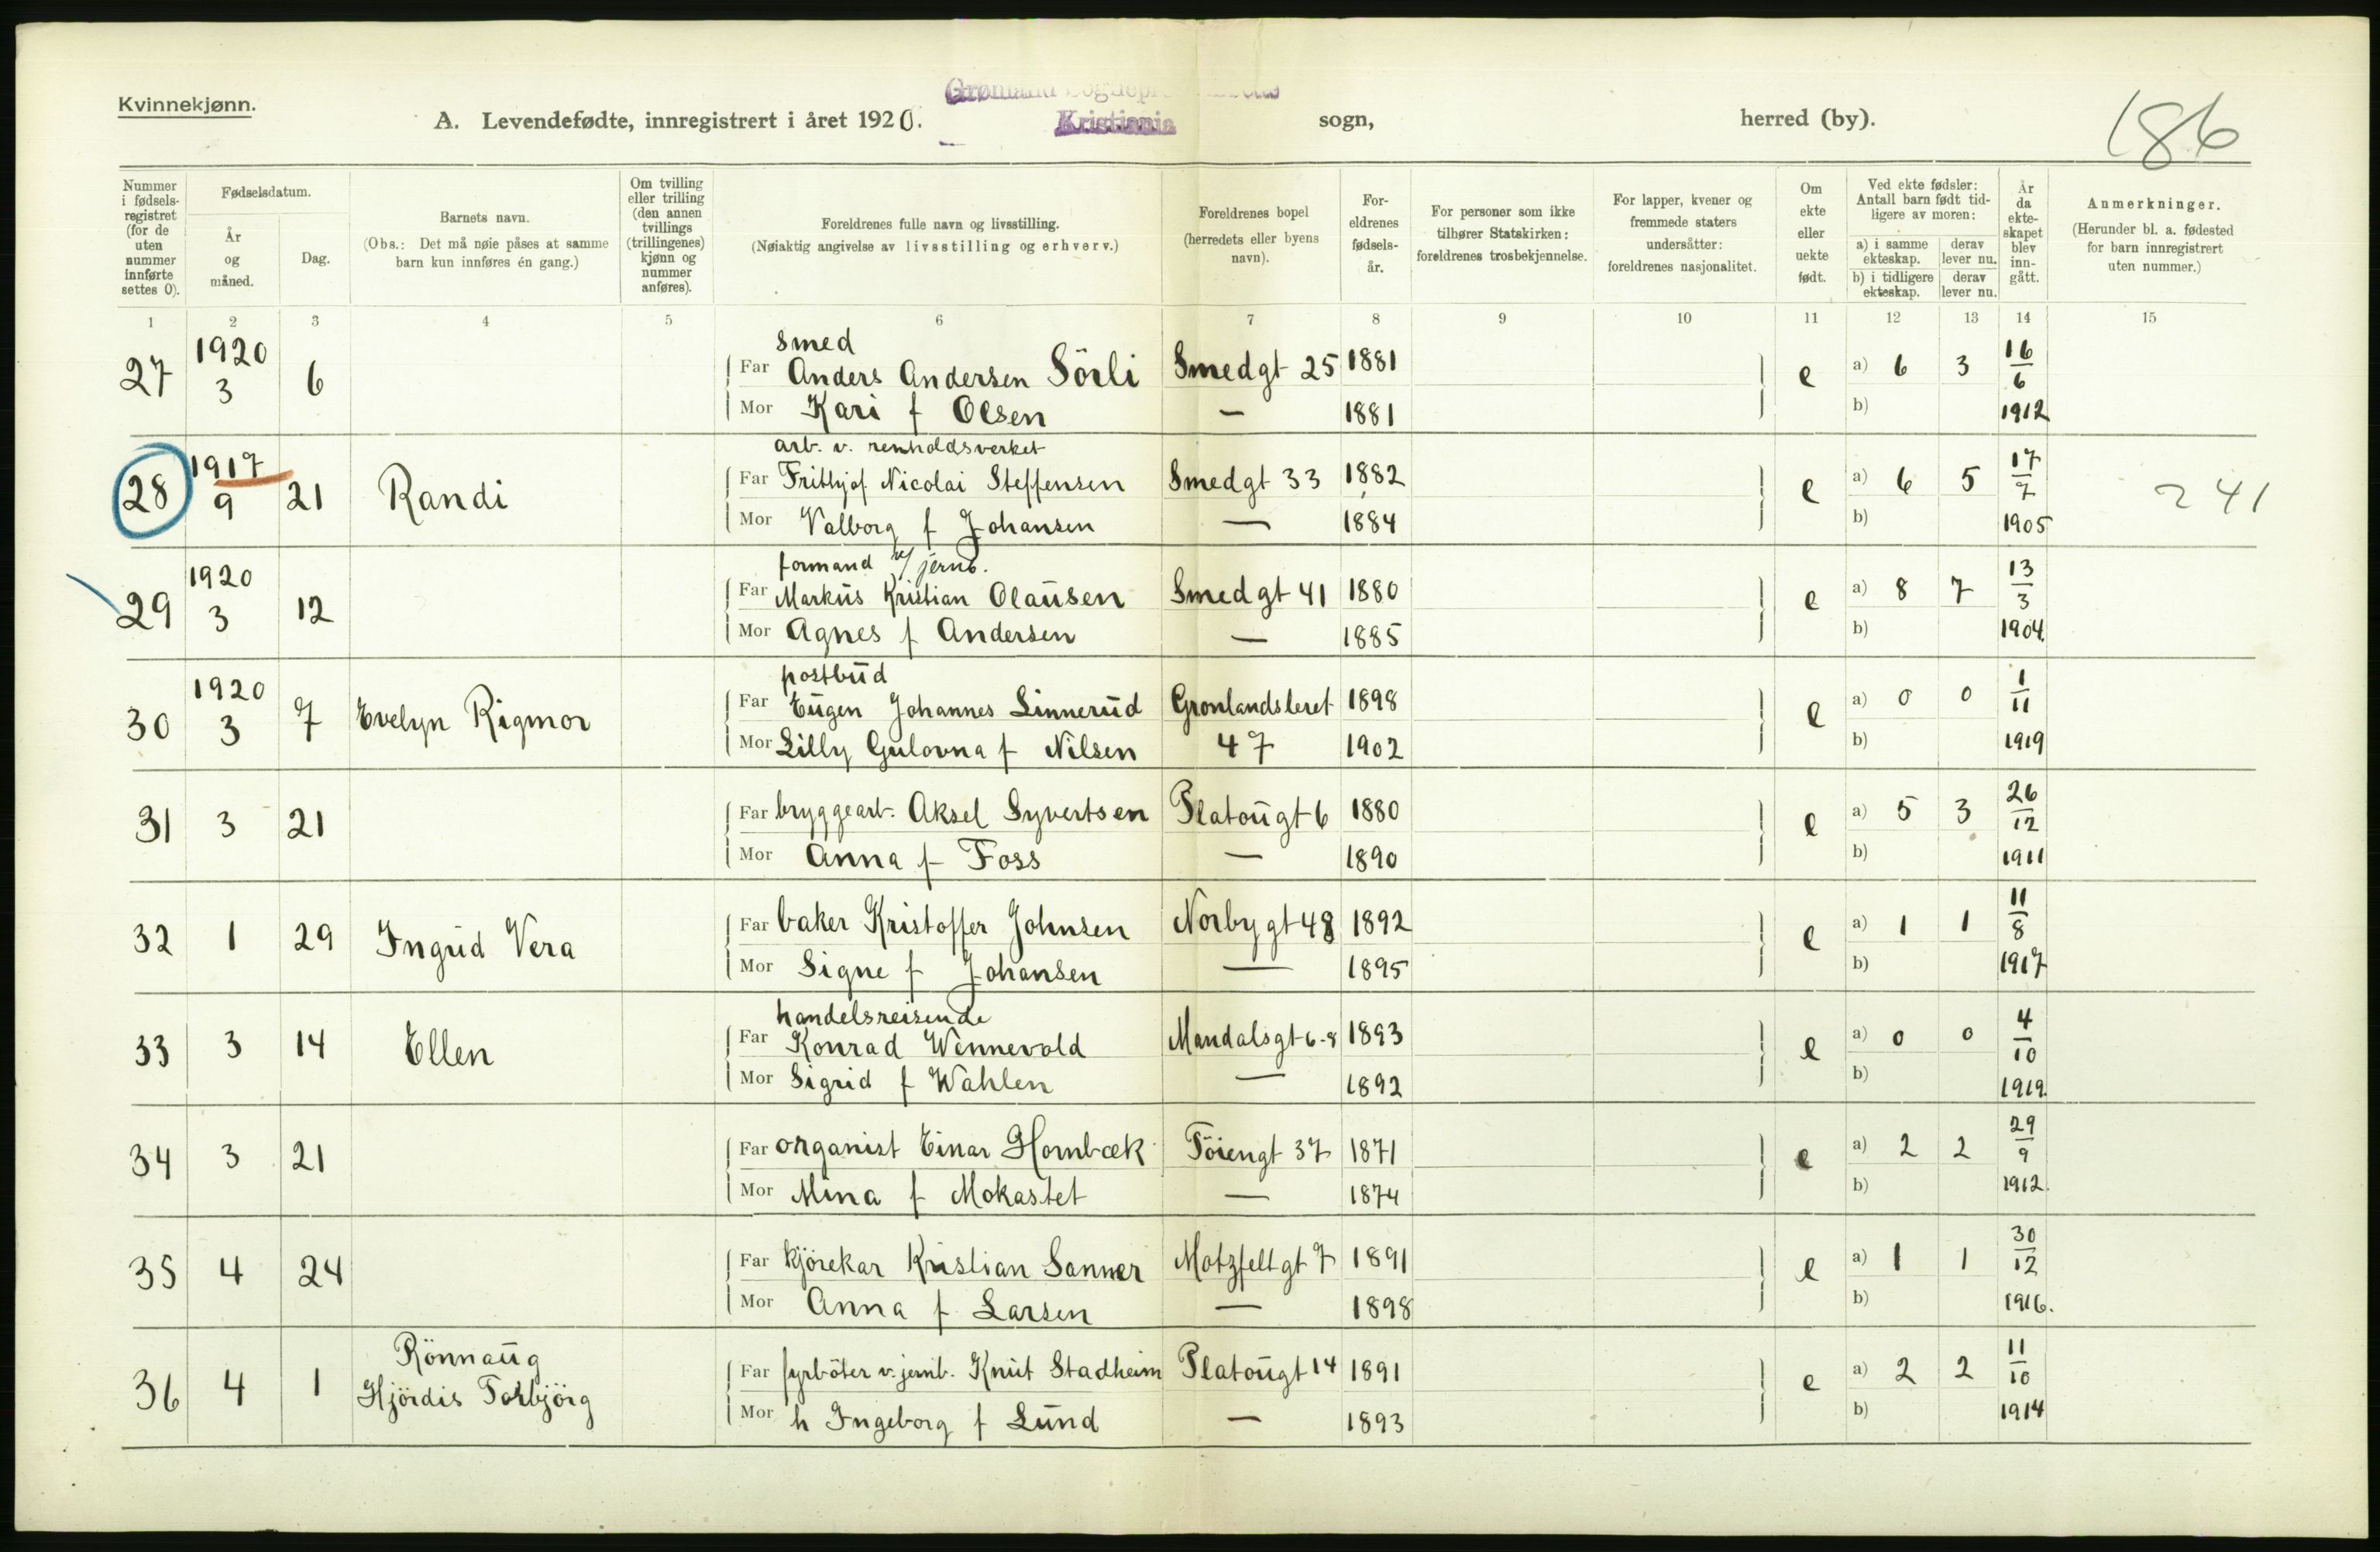 Kvinnekjønn.
A. Levendefødte, innregistrert i året 1920. Kristiania sogn, herred (by).
186
Nummer i fødselsregistret (for de uten nummer innførte settes 0).
Fødselsdatum.
År og måned.
Dag.
Barnets navn.
(Obs.: Det må nøie påses at samme barn kun innføres én gang.)
Om tvilling eller trilling (den annen tvillings (trillingenes) kjønn og nummer anføres).
Foreldrenes fulle navn og livsstilling.
(Nøiaktig angivelse av livsstilling og erhverv.)
Foreldrenes bopel (herredets eller byens navn).
Foreldrenes fødselsår.
For personer som ikke tilhører Statskirken: foreldrenes trosbekjennelse.
For lapper, kvener og fremmede staters undersåtter: foreldrenes nasjonalitet.
Om ekte eller uekte født.
Ved ekte fødsler: Antall barn født tidligere av moren:
a) i samme ekteskap. derav lever nu.
b) i tidligere ekteskap. derav lever nu.
År da ekteskapet blev inngått.
Anmerkninger.
(Herunder bl. a. fødested for barn innregistrert uten nummer.)
1 2 3 4 5 6 7 8 9 10 11 12 13 14 15
27 1920 3 6 smed Far Anders Andersen Sörli Smedgt 25 1881 e a) 6 3 16/6
Mor Kari f Olsen — 1881 b) 1912
28 1917 9 21 Randi arb. v. renholdsverket Far Frithjof Nicolai Steffensen Smedgt 33 1882 e a) 6 5 17/7 241
Mor Valborg f Johansen — 1884 b) 1905
29 1920 3 12 formand v/ jernb. Far Markus Kristian Olausen Smedgt 41 1880 e a) 8 7 13/3
Mor Agnes f Andersen — 1885 b) 1904.
30 1920 3 7 Evelyn Rigmor postbud Far Eugen Johannes Linnerud Gronlandsleret 1898 e a) 0 0 1/11
Mor Lilly Gulovna f Nilsen 47 1902 b) 1919
31 3 21 Far bryggearb. Aksel Syvertsen Platougt 6 1880 e a) 5 3 26/12
Mor Anna f Foss — 1890 b) 1911
32 1 29 Ingrid Vera Far baker Kristoffer Johnsen Norbygt 48 1892 e a) 1 1 11/8
Mor Signe f Johansen — 1895 b) 1917
33 3 14 Ellen handelsreisende Far Konrad Wennevold Mandalsgt 6-8 1893 e a) 0 0 4/10
Mor Sigrid f Wahlen — 1892 b) 1919.
34 3 21 Far organist Einar Hornbæk Töiengt 37 1871 e a) 2 2 29/9
Mor Mina f Mokastet — 1874 b) 1912.
35 4 24 Far kjörekar Kristian Sanner Motzfeltgt 7 1891 e a) 1 1 30/12
Mor Anna f Larsen — 1898 b) 1916.
36 4 1 Rönnaug Hjördis Torbjörg Far fyrböter v. jernb. Knut Stadheim Platougt 14 1891 e a) 2 2 11/10
Mor h Ingeborg f Lund — 1893 b) 1914